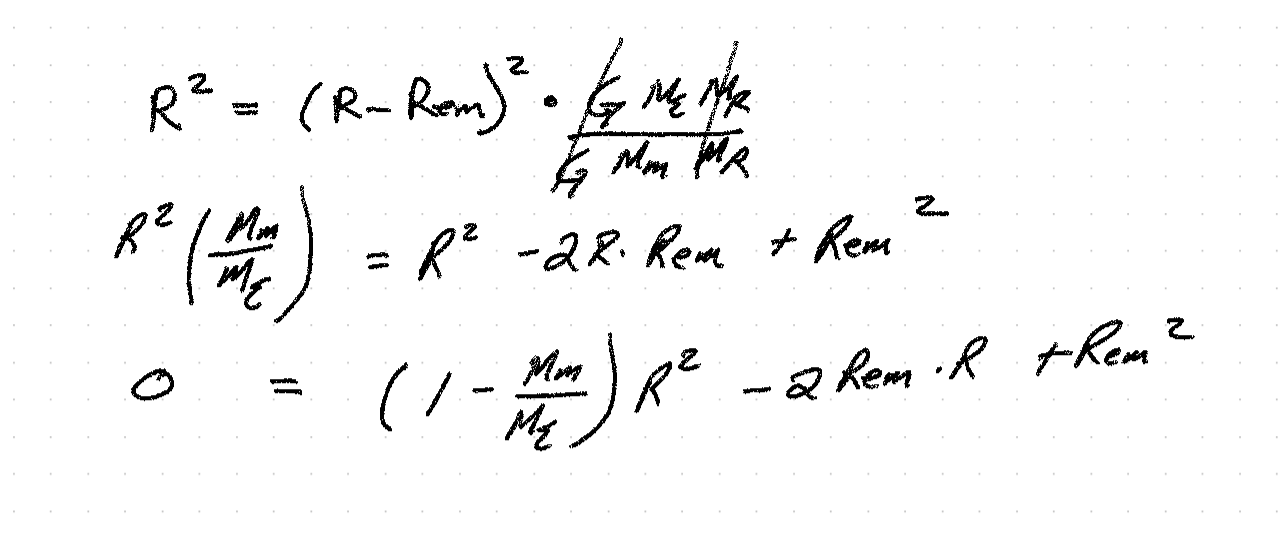 R² = (R - Rem)² · (G M_E M_R)/(G M_m M_R)
R² (M_m/M_E) = R² - 2R · Rem + Rem²
0 = (1 - M_m/M_E) R² - 2 Rem · R + Rem²